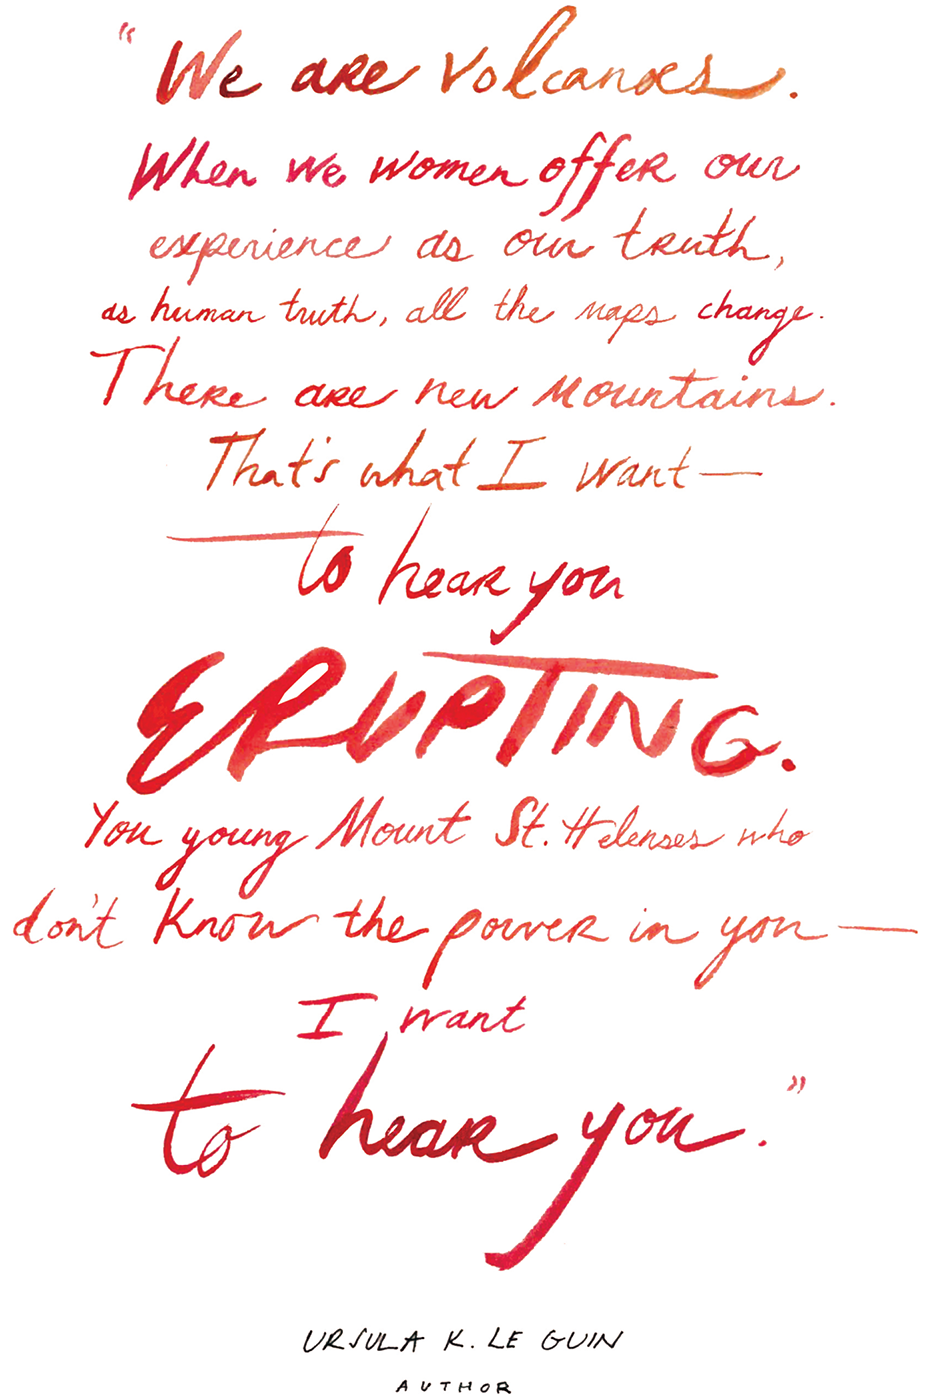 “We are volcanoes.
When we women offer our
experience as our truth,
as human truth, all the maps change.
There are new mountains.
That's what I want—
to hear you
ERUPTING.
You young Mount St. Helenses who
don't know the power in you—
I want
to hear you.”
URSULA K. LE GUIN
AUTHOR